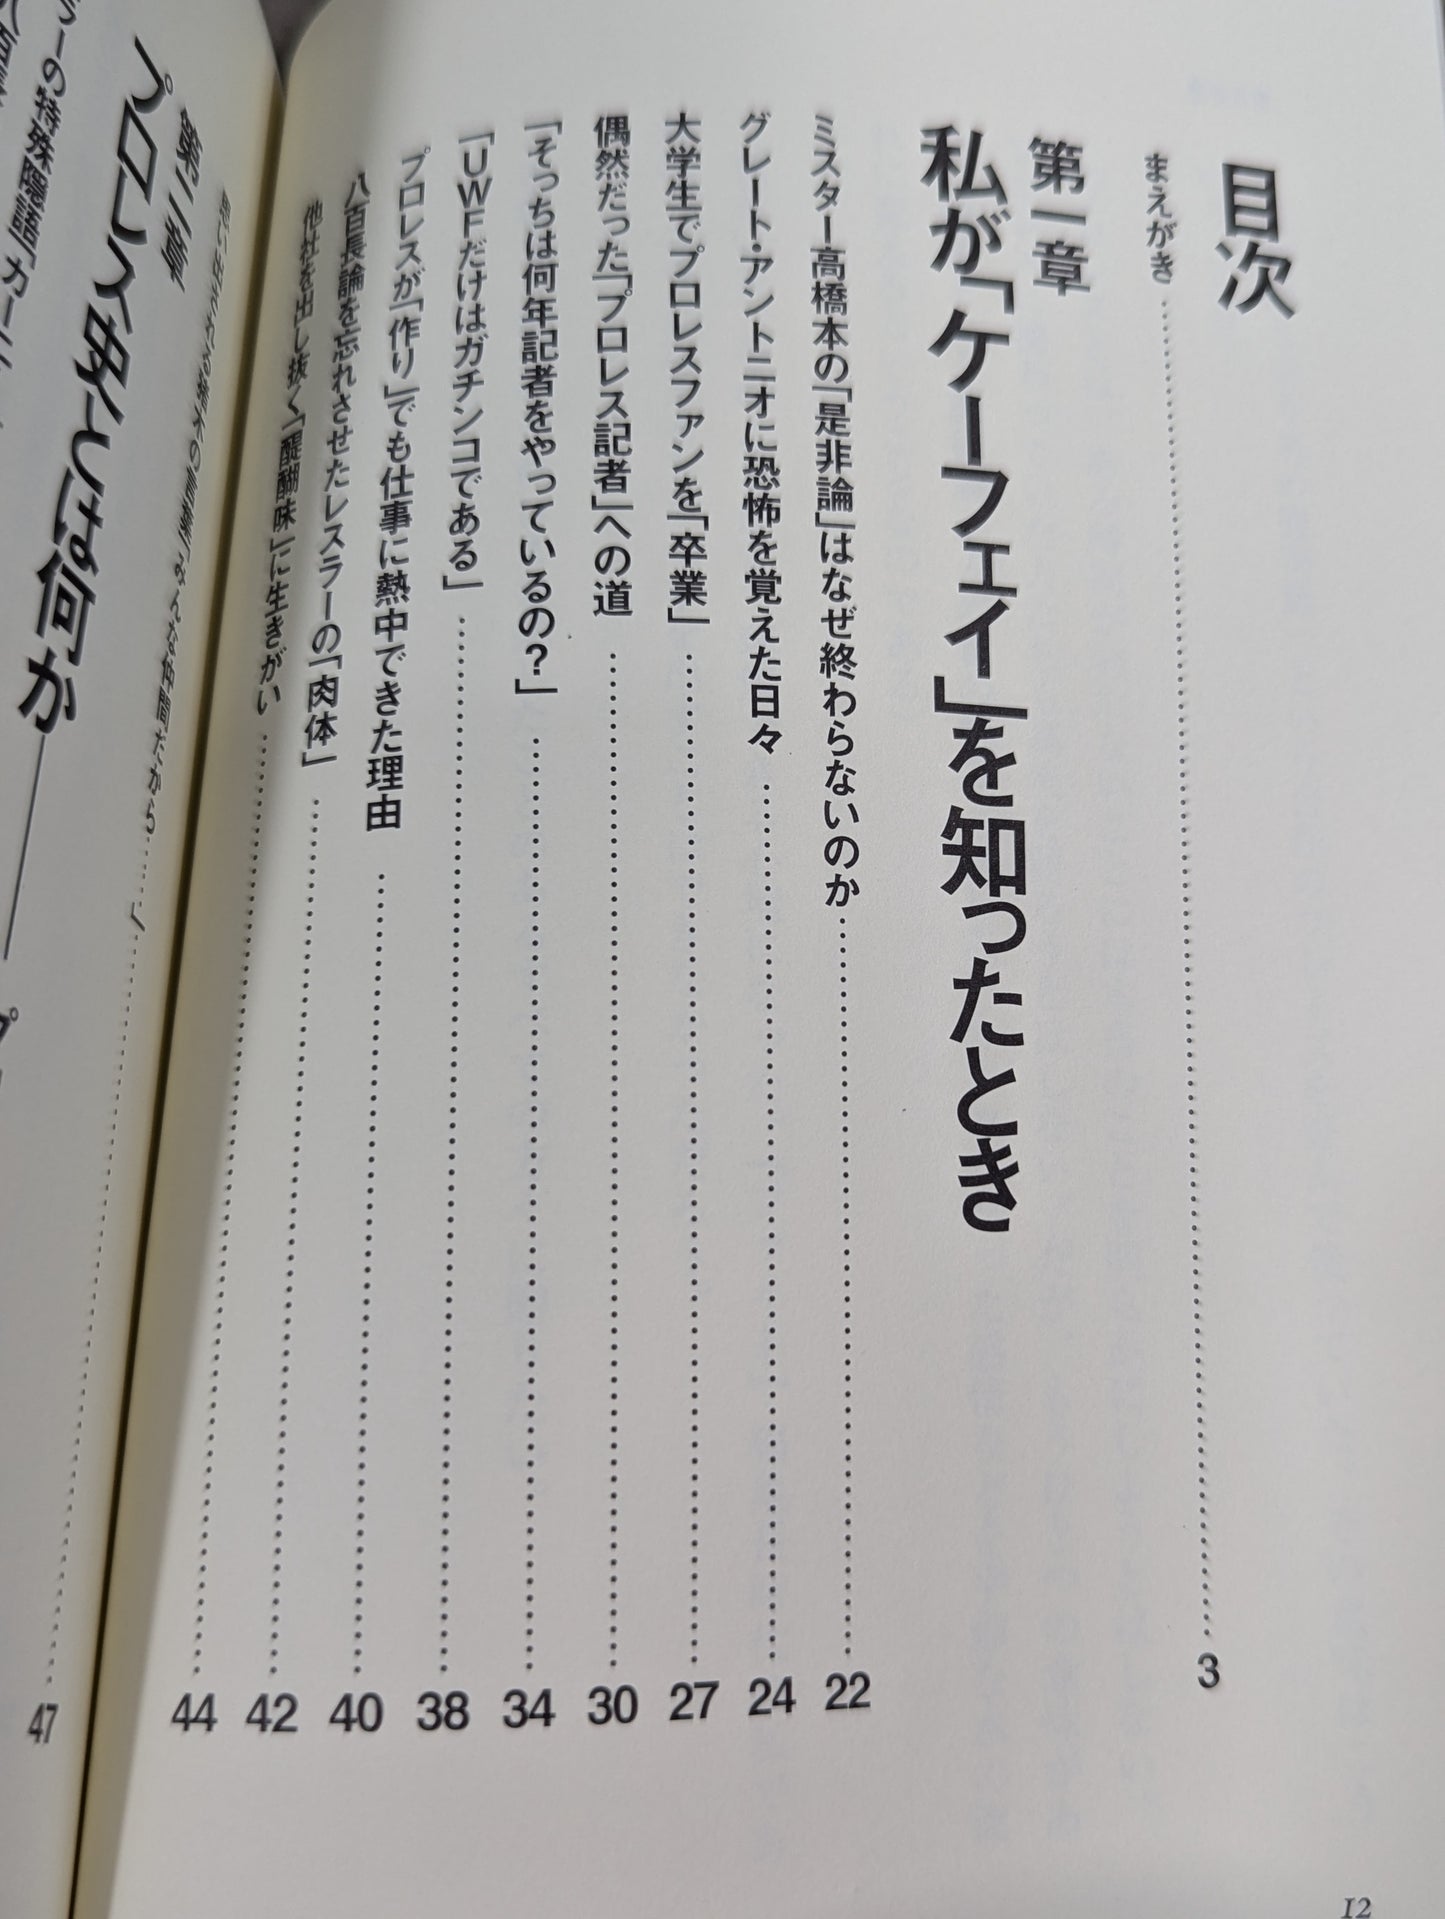 目次
まえがき……3
第一章
私が「ケーフェイ」を知ったとき
ミスター高橋本の「是非論」はなぜ終わらないのか……22
グレート・アントニオに恐怖を覚えた日々……24
大学生でプロレスファンを「卒業」……27
偶然だった「プロレス記者」への道……30
「そっちは何年記者をやっているの？」……34
「UWFだけはガチンコである」……38
プロレスが「作り」でも仕事に熱中できた理由……40
八百長論を忘れさせたレスラーの「肉体」……42
他社を出し抜く「醍醐味」に生きがい……44
思い出される猪木の言葉「みんな仲間だから……」……47
第二章
プロレス史とは何か
ラーの特殊隠語「カー
12